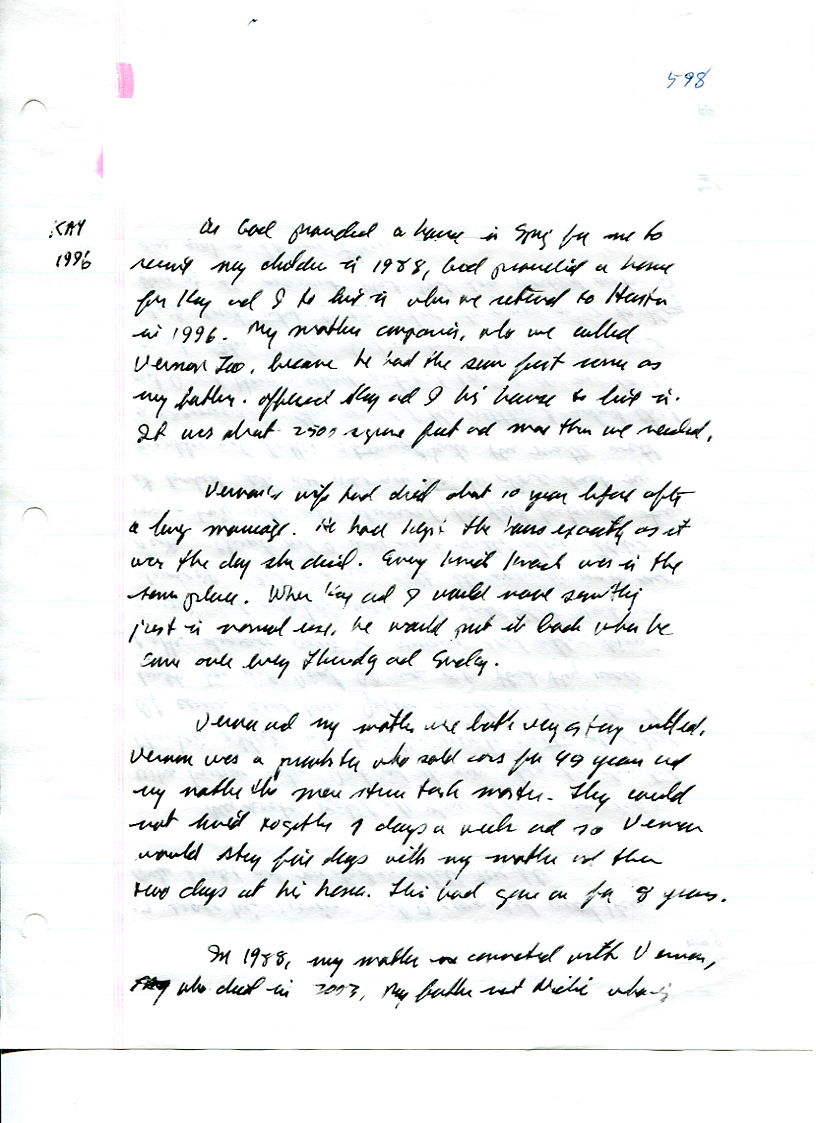 598
KAY
1996
As God provided a house in Spring for me to
my children in 1988, God provided a house
for Kay and I to live in when we returned to Houston
in 1996. My mother companion, who we called
Vernon Too, because he had the same first name as
my father. offered Kay and I his house to live in.
It was about 2500 square feet and more than we needed.
Vernon's wife had died about 10 year before after
a long marriage. He had kept the house exactly as it
was the day she died. Every knick knack was in the
same place. When Kay and I would move something
just in normal use, he would put it back when he
came over every Thursday and Sunday.
Vernon and my mother were both very strong willed.
Vernon was a who sold cars for 40 years and
my mother the more stern task master. They could
not lived together 7 days a week and so Vernon
would stay five days with my mother and then
two days at his house. This had gone on for 8 years.
In 1988, my mother connected with Vernon,
who died in 2003, My father met who